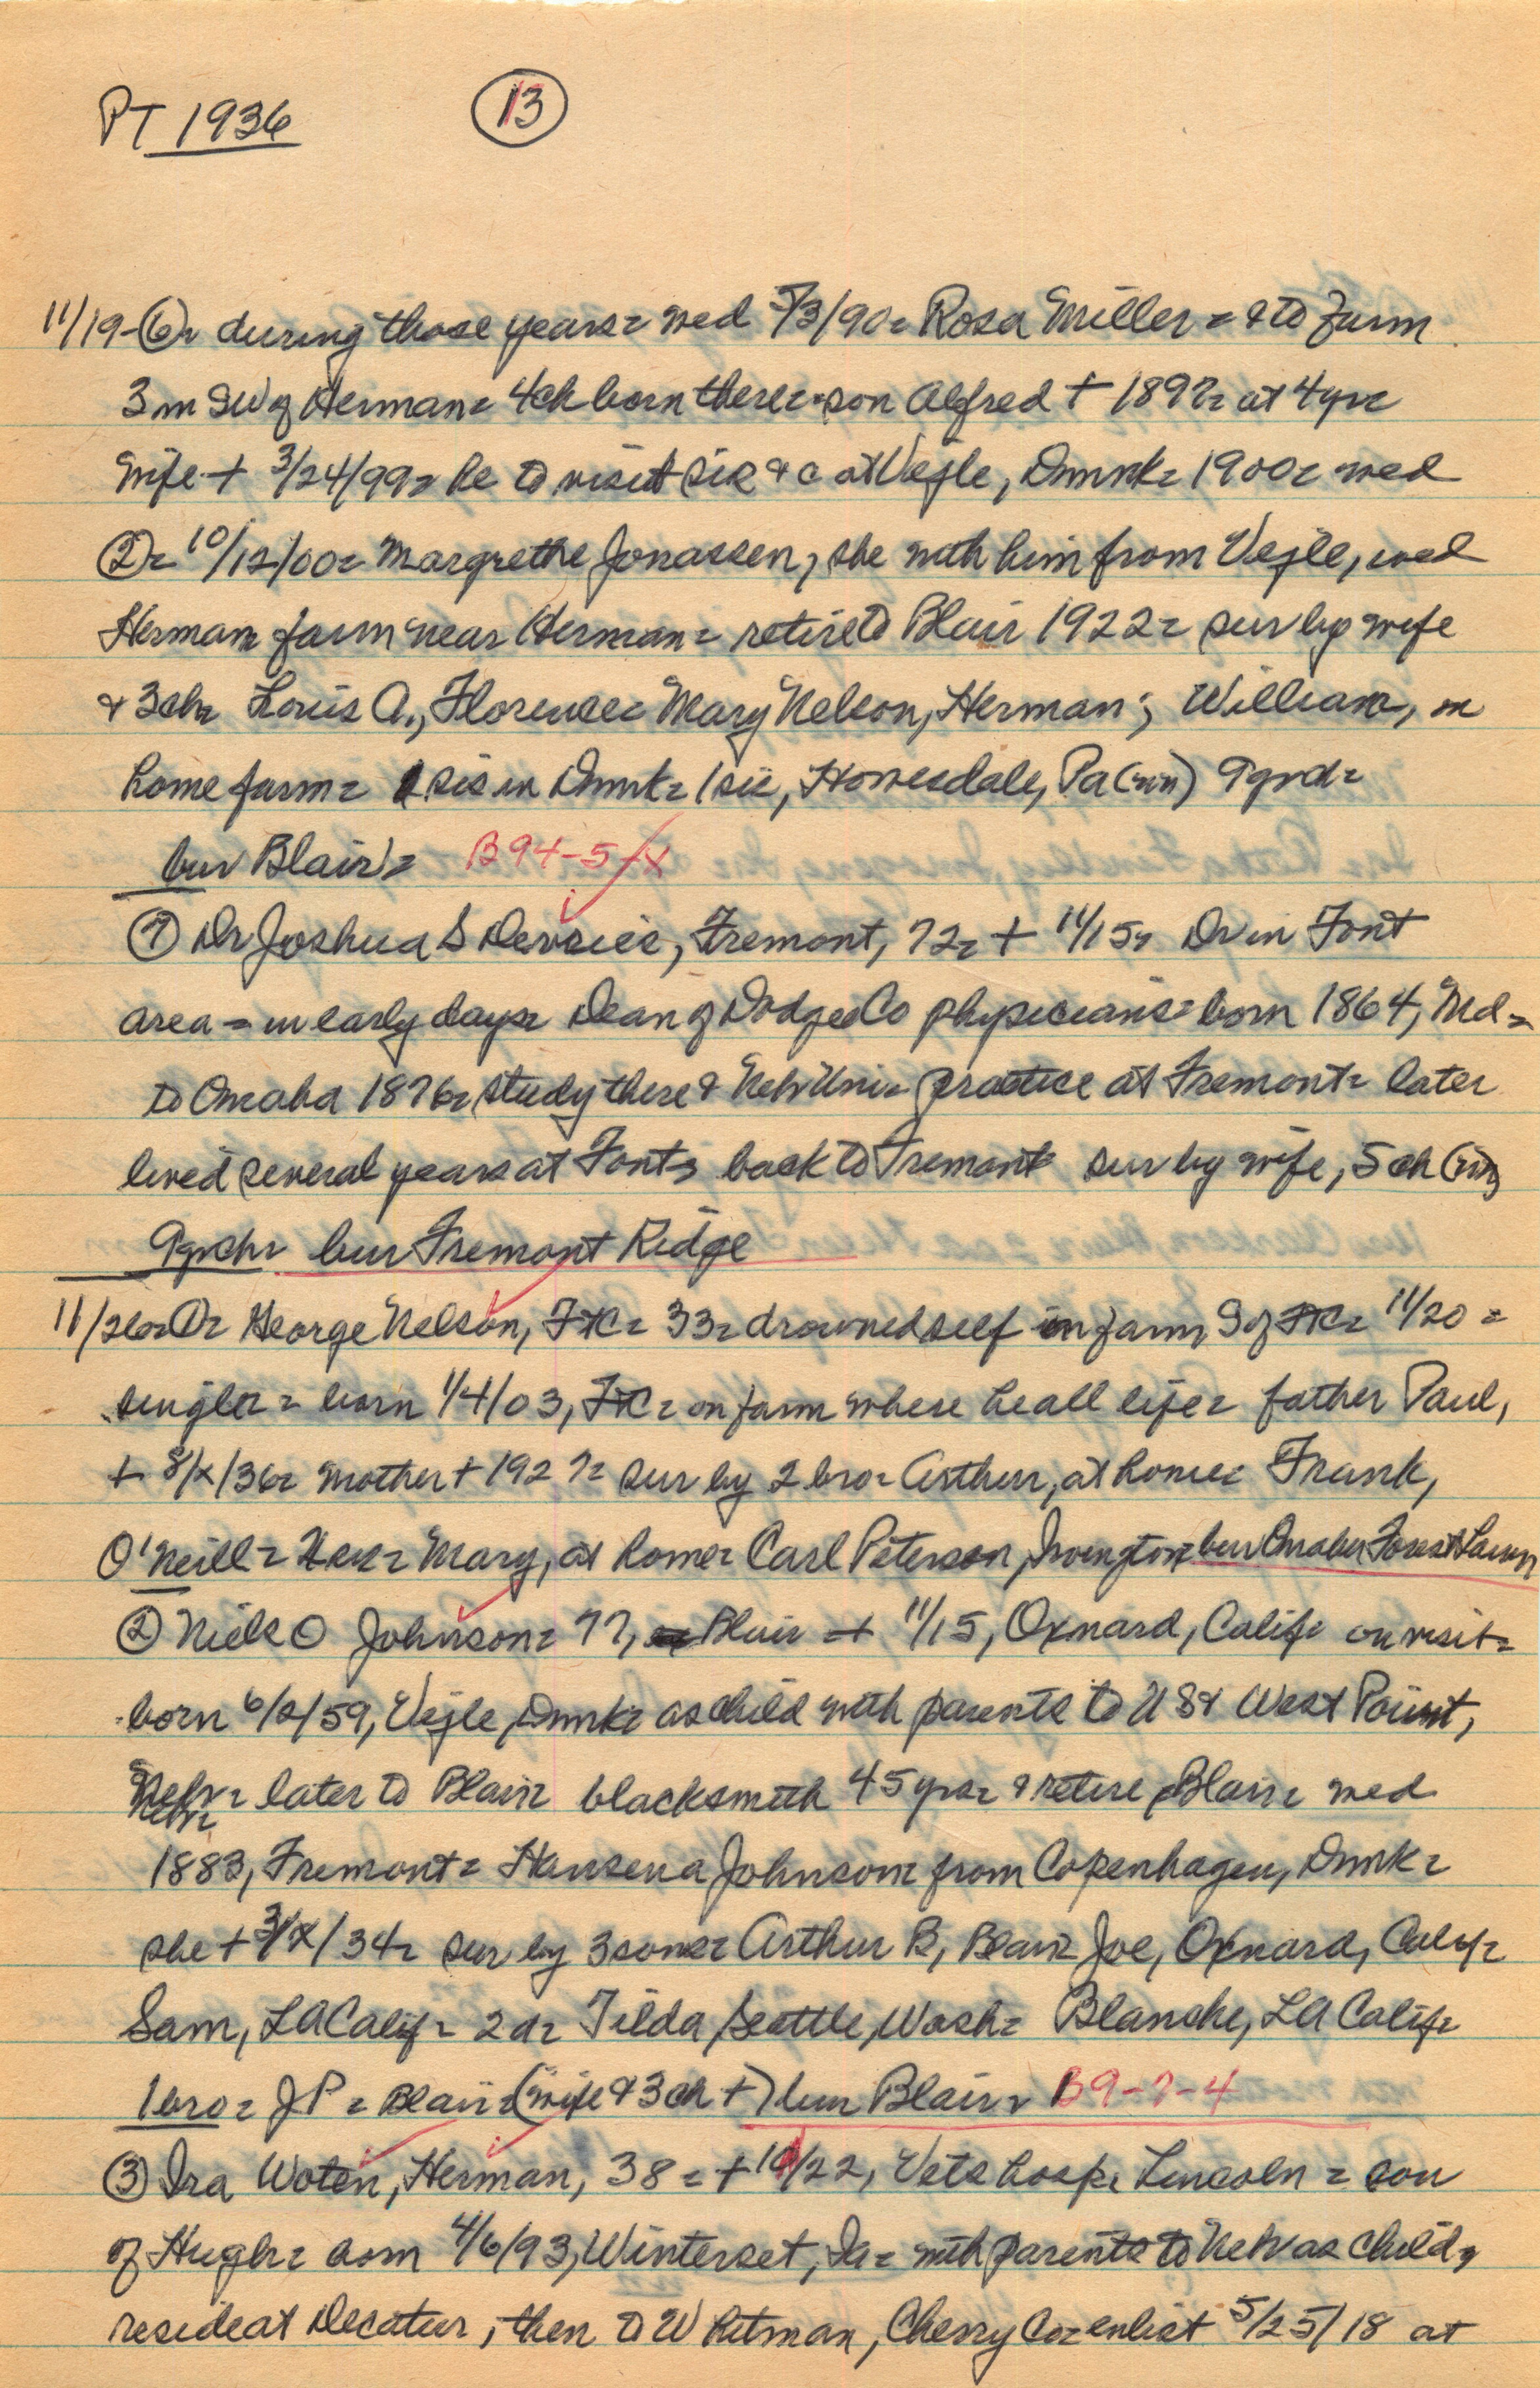 PT 1936 13
11/19-6= during those years= wed 5/3/90= Rosa Miller= & to farm
3m SW of Herman= 4ch born there= son Alfred + 1897= at 4yr=
Wife + 3/24/99= he to visit sis & c at Vejle, Dnmk= 1900= wed
2= 10/12/00= Margrethe Jonassen, she with him from Vejle, wed
Herman= farm near Herman= retire to Blair 1922= sur by wife
& 3ch= Louis A., Florence= Mary Nelson, Herman; William, on
home farm= 1 sis in Dnmk= 1 sis, Honesdale, Pa (nn) 9grd=
bur Blair= B94-5-X
7 Dr Joshua S Devries, Fremont, 72= + 11/15= Dr in Font
area= in early days= Dean of Dodge Co physicians= born 1864, Md=
to Omaha 1876= study there & Neb Uni= practice at Fremont= later
lived several years at Font= back to Fremont= sur by wife, 5ch (nn)
9grch= bur Fremont Ridge
11/26= 1= George Nelson, FtC= 33= drowned self on farm S of FtC= 11/20=
single= born 1/4/03, FtC= on farm where he all life= father Paul,
+ 8/x/36= mother + 1927= sur by 2 bro= Arthur, at home= Frank,
O'Neill= 2 sis= Mary, at home= Carl Peterson, Irvington= bur Omaha Forest Lawn
2 Niels O Johnson= 77, Blair + 11/15, Oxnard, Calif= on visit=
born 6/2/59, Vejle, Dnmk= as child with parents to US & West Point,
Nebr= later to Blair= blacksmith 45yrs= & retire Blair= wed
Nebr=
1883, Fremont= Hansena Johnson= from Copenhagen, Dnmk=
she + 3/x/34= sur by 3 sons= Arthur B, Blair= Joe, Oxnard, Calif=
Sam, LA Calif= 2 d= Tilda, Seattle, Wash= Blanche, LA Calif=
1 bro= JP= Blair= (wife & 3ch +) bur Blair= B9-7-4
3 Ira Woten, Herman, 38= + /22, Vets hosp= Lincoln= son
of Hugh= born 4/6/93, Winterset, Ia= with parents to Neb as child,
reside at Decatur, then to Whitman, Cherry Co= enlist 5/25/18 at